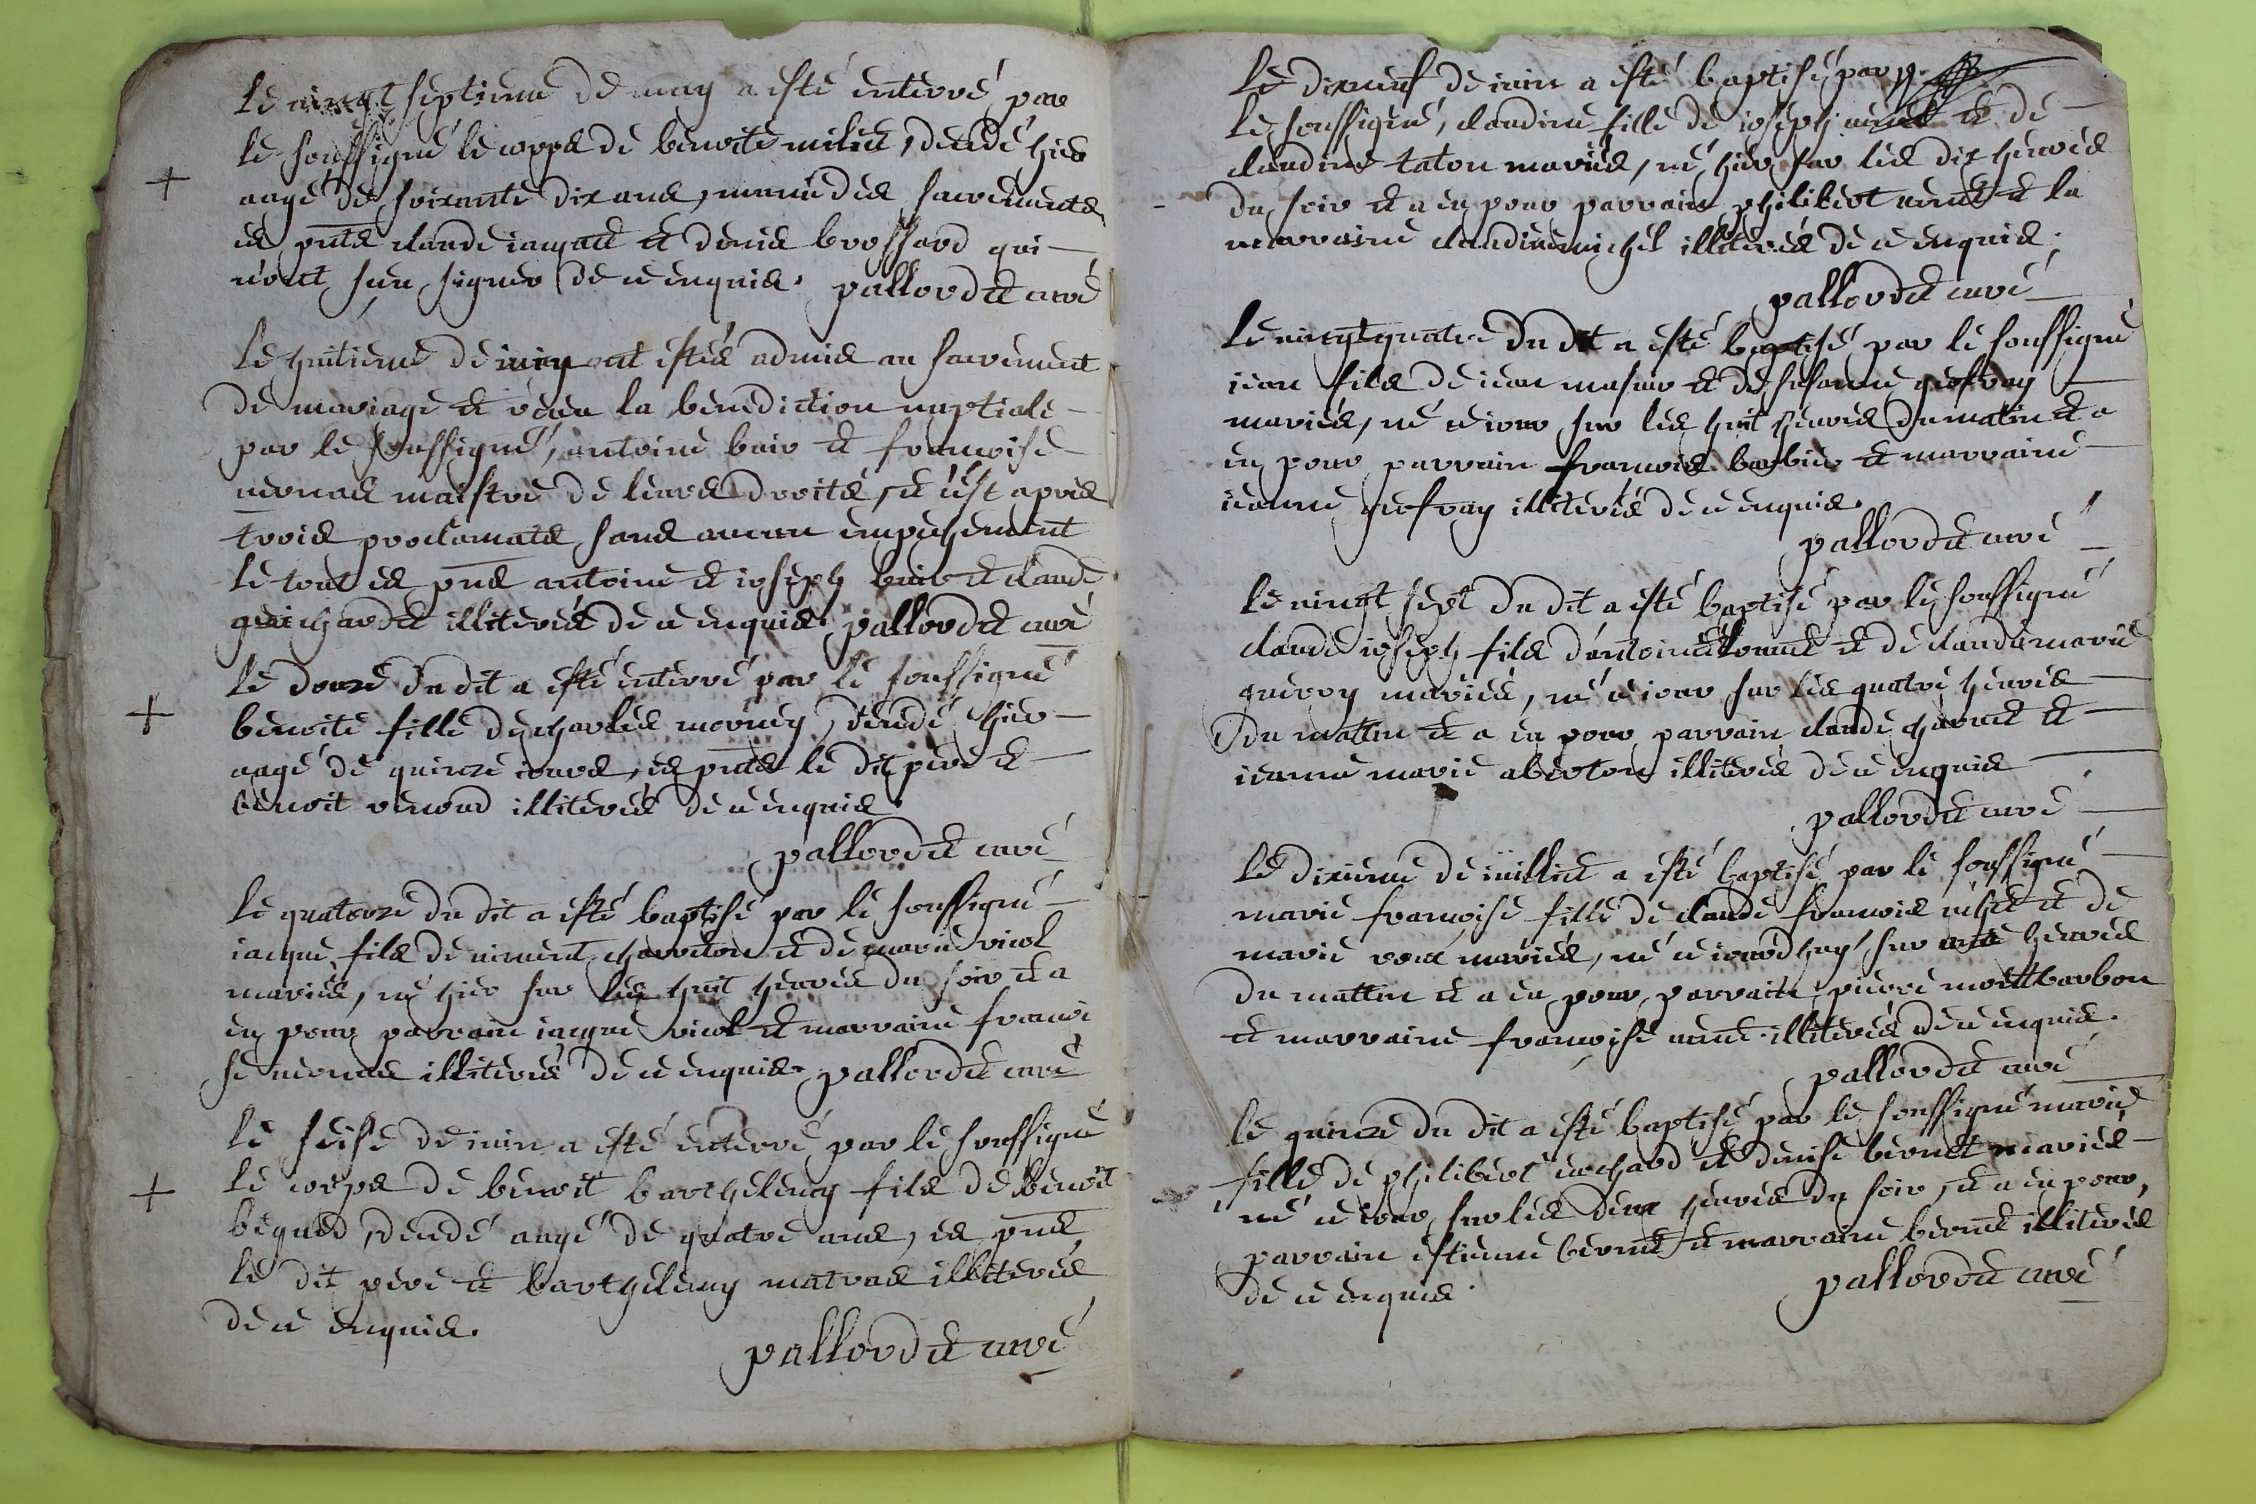 le vingt septieme de may a esté enterré par
le soussigné le corps de benoite milict, decedé hier
aagé de soixante dix ans, munie des sacrements
es pnts claude iacquet et denis brossard qui
n'ont sceu signer de ce enquis. pallordet curé
le huitieme de iuin ont estés admis au sacrement
de mariage et receu la benediction nuptiale
par le soussigné, antoine buir et francoise
maistre de leurs droits, et c'est apres
trois proclamats sans aucun empechement
le tout es pns antoine et ioseph buir et claude
guichardet illiterés de ce enquis. pallordet curé
le douze du dit a esté enterré par le soussigné
benoite fille de charles morney, decedé hier
aagé de quinze iours, es pnts le dit pere et
benoit renoud illiterés de ce enquis.
pallordet curé
le quatorze du dit a esté baptisé par le soussigné
iacque fils de vincent charreton et de marie viol
mariés, né hier sur les huit heures du soir et a
eu pour parrain iacque viol et marraine francoi
se illiterés de ce enquis. pallordet curé
le seise de iuin a esté enterré par le soussigné
le corps de benoit barthelemy fils de benoit
beguet, decedé aagé de quatre ans, es pnts
le dit pere et barthelemy matras illiterés
de ce enquis.
pallordet curé
le dixneuf de iuin a esté baptisé par
le soussigné, claudine fille de ioseph et de
claudine taton mariés, né hier sur les dix heures
du soir et a eu pour parrain philibert et la
marraine claudine michel illiterés de ce enquis.
pallordet curé
le vingtquatre du dit a esté baptisé par le soussigné
iean fils de iean masuir et de susanne geofray
mariés, né ce iour sur les huit heures du matin et a
eu pour parrain francois barbier et marraine
ieanne geofray illiterés de ce enquis.
pallordet curé
le vingt sept du dit a esté baptisé par le soussigné
claude ioseph fils d'antoine et de claudemarie
guerry mariés, né ce iour sur les quatre heures
du matin et a eu pour parrain claude charvet et
ieanne marie aberton illiterés de ce enquis
pallordet curé
le dixieme de iuilliet a esté baptisé par le soussigné
marie francoise fille de claude francois et de
marie mariés, né ce iourd'huy sur heures
du matin et a eu pour parrain pierre montbarbon
et marraine francoise illiterés de ce enquis.
pallordet curé
le quinze du dit a esté baptisé par le soussigné marie
fille de philibert cochard et denise bernet mariés
né ce iour sur les deux heures du soir, et a eu pour
parrain estienne bernet et marraine bernet illiterés
de ce enquis.
pallordet curé